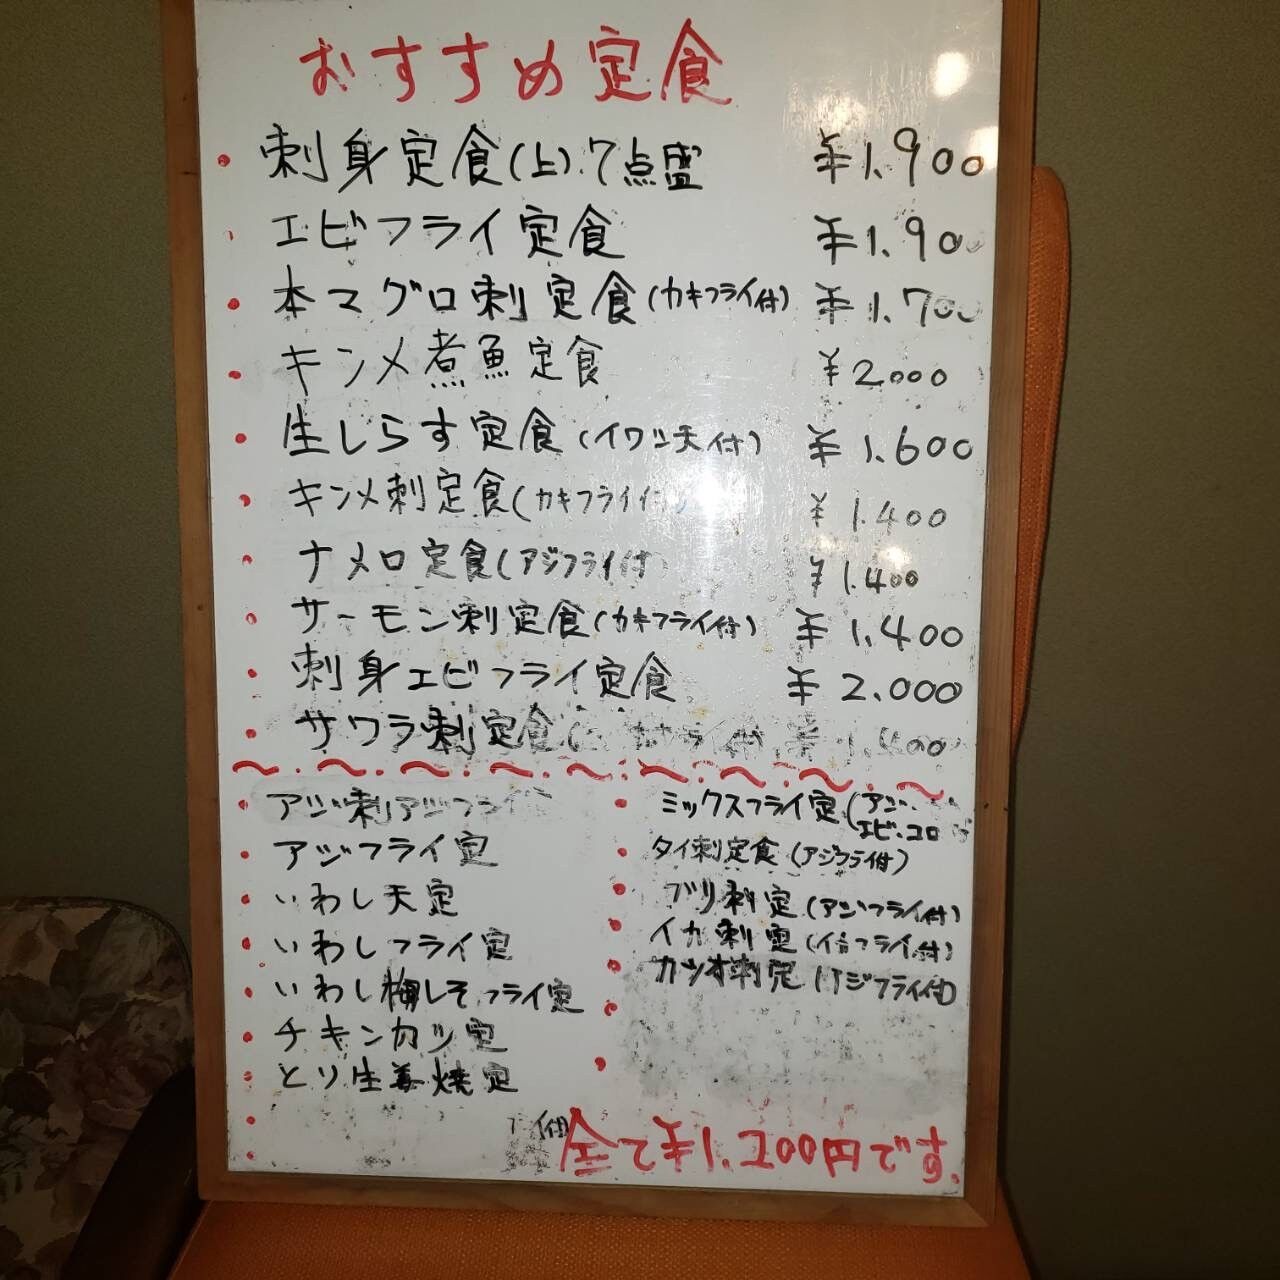 おすすめ定食
刺身定食(上).7点盛 ¥1.900
エビフライ定食 ¥1.900
本マグロ刺定食(カキフライ付) ¥1.700
キンメ煮魚定食 ¥2.000
生しらす定食(イワシ天付) ¥1.600
キンメ刺定食(カキフライ付) ¥1.400
ナメロ定食(アジフライ付) ¥1.400
サーモン刺定食(カキフライ付) ¥1.400
刺身エビフライ定食 ¥2.000
サワラ刺定食( フライ付 ¥1.400
アジ刺アジフライ
アジフライ定
いわし天定
いわしフライ定
いわし梅しそフライ定
チキンカツ定
とり生姜焼定
ミックスフライ定(アジ.
エビ.コロ
タイ刺定食(アジフライ付)
ブリ刺定(アジフライ付)
イカ刺定(イカフライ付)
カツオ刺定(アジフライ付)
付
全て¥1.200円です.